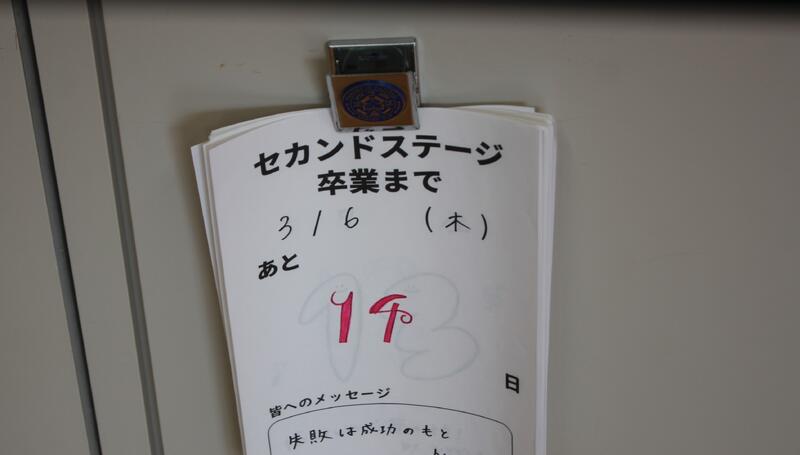 セカンドステージ
卒業まで
3/6 (木)
あと
14
日
皆へのメッセージ
失敗は成功のもと